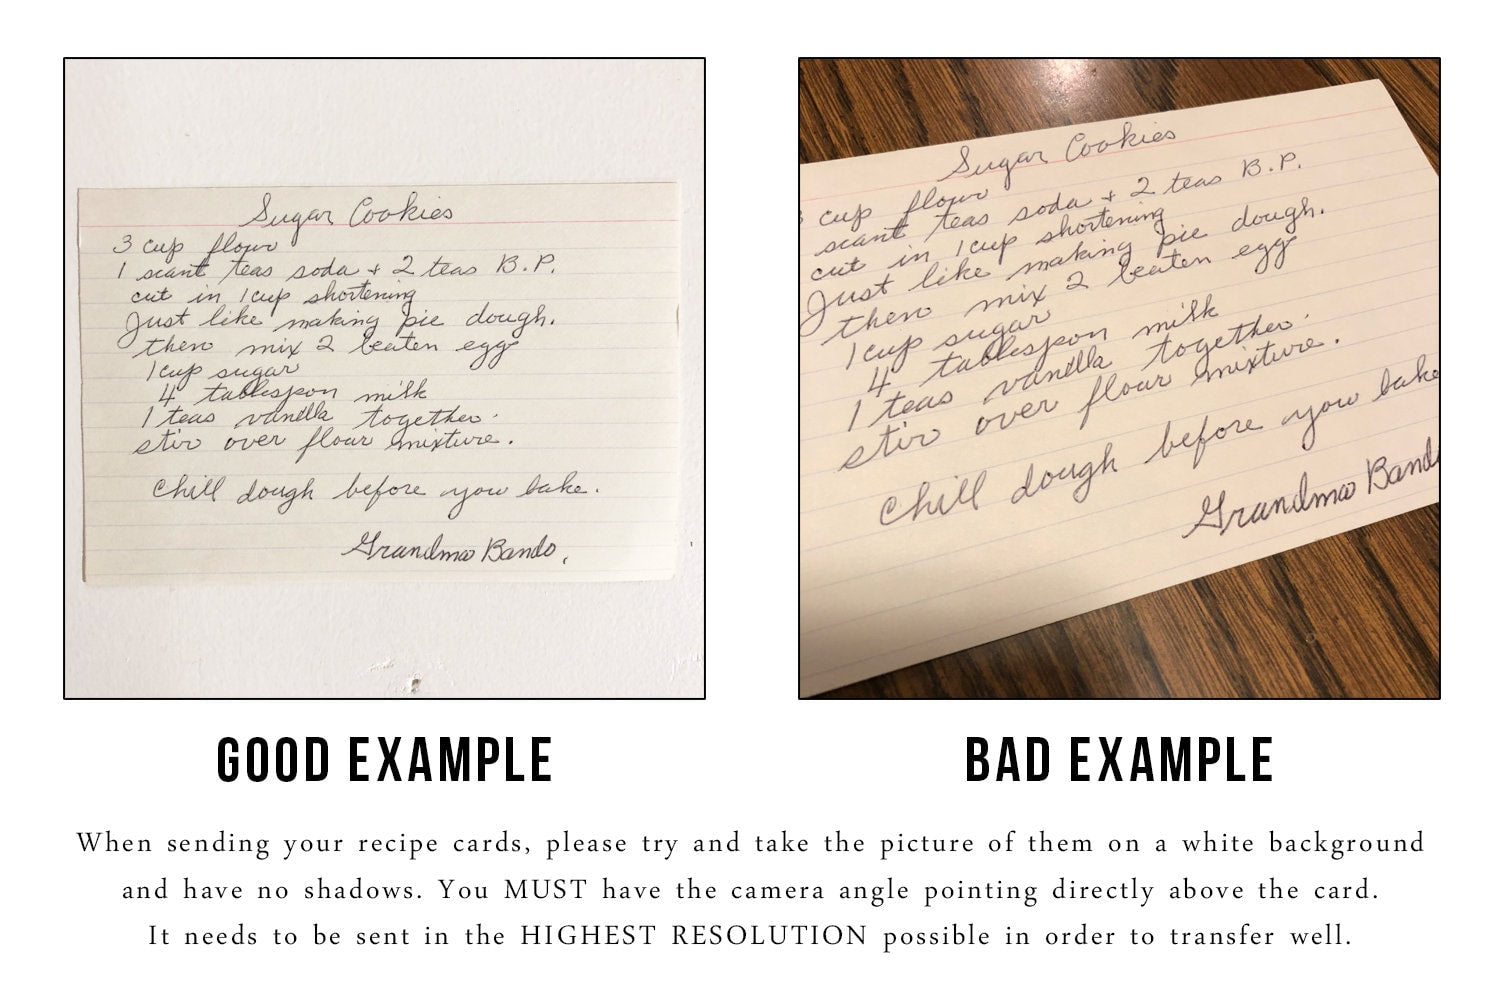 Sugar Cookies
3 cup flour
1 scant teas soda + 2 teas B.P.
cut in 1 cup shortening
Just like making pie dough.
then mix 2 beaten egg
1 cup sugar
4 tablespon milk
1 teas vanilla together.
stir over flour mixture.
Chill dough before you bake.
Grandma Bando,
Sugar Cookies
3 cup flour
scant teas soda + 2 teas B.P.
cut in 1 cup shortening
Just like making pie dough.
then mix 2 beaten egg
1 cup sugar
4 tablespon milk
1 teas vanilla together.
stir over flour mixture.
Chill dough before you bake
Grandma Band
GOOD EXAMPLE
BAD EXAMPLE
When sending your recipe cards, please try and take the picture of them on a white background
and have no shadows. You MUST have the camera angle pointing directly above the card.
It needs to be sent in the HIGHEST RESOLUTION possible in order to transfer well.